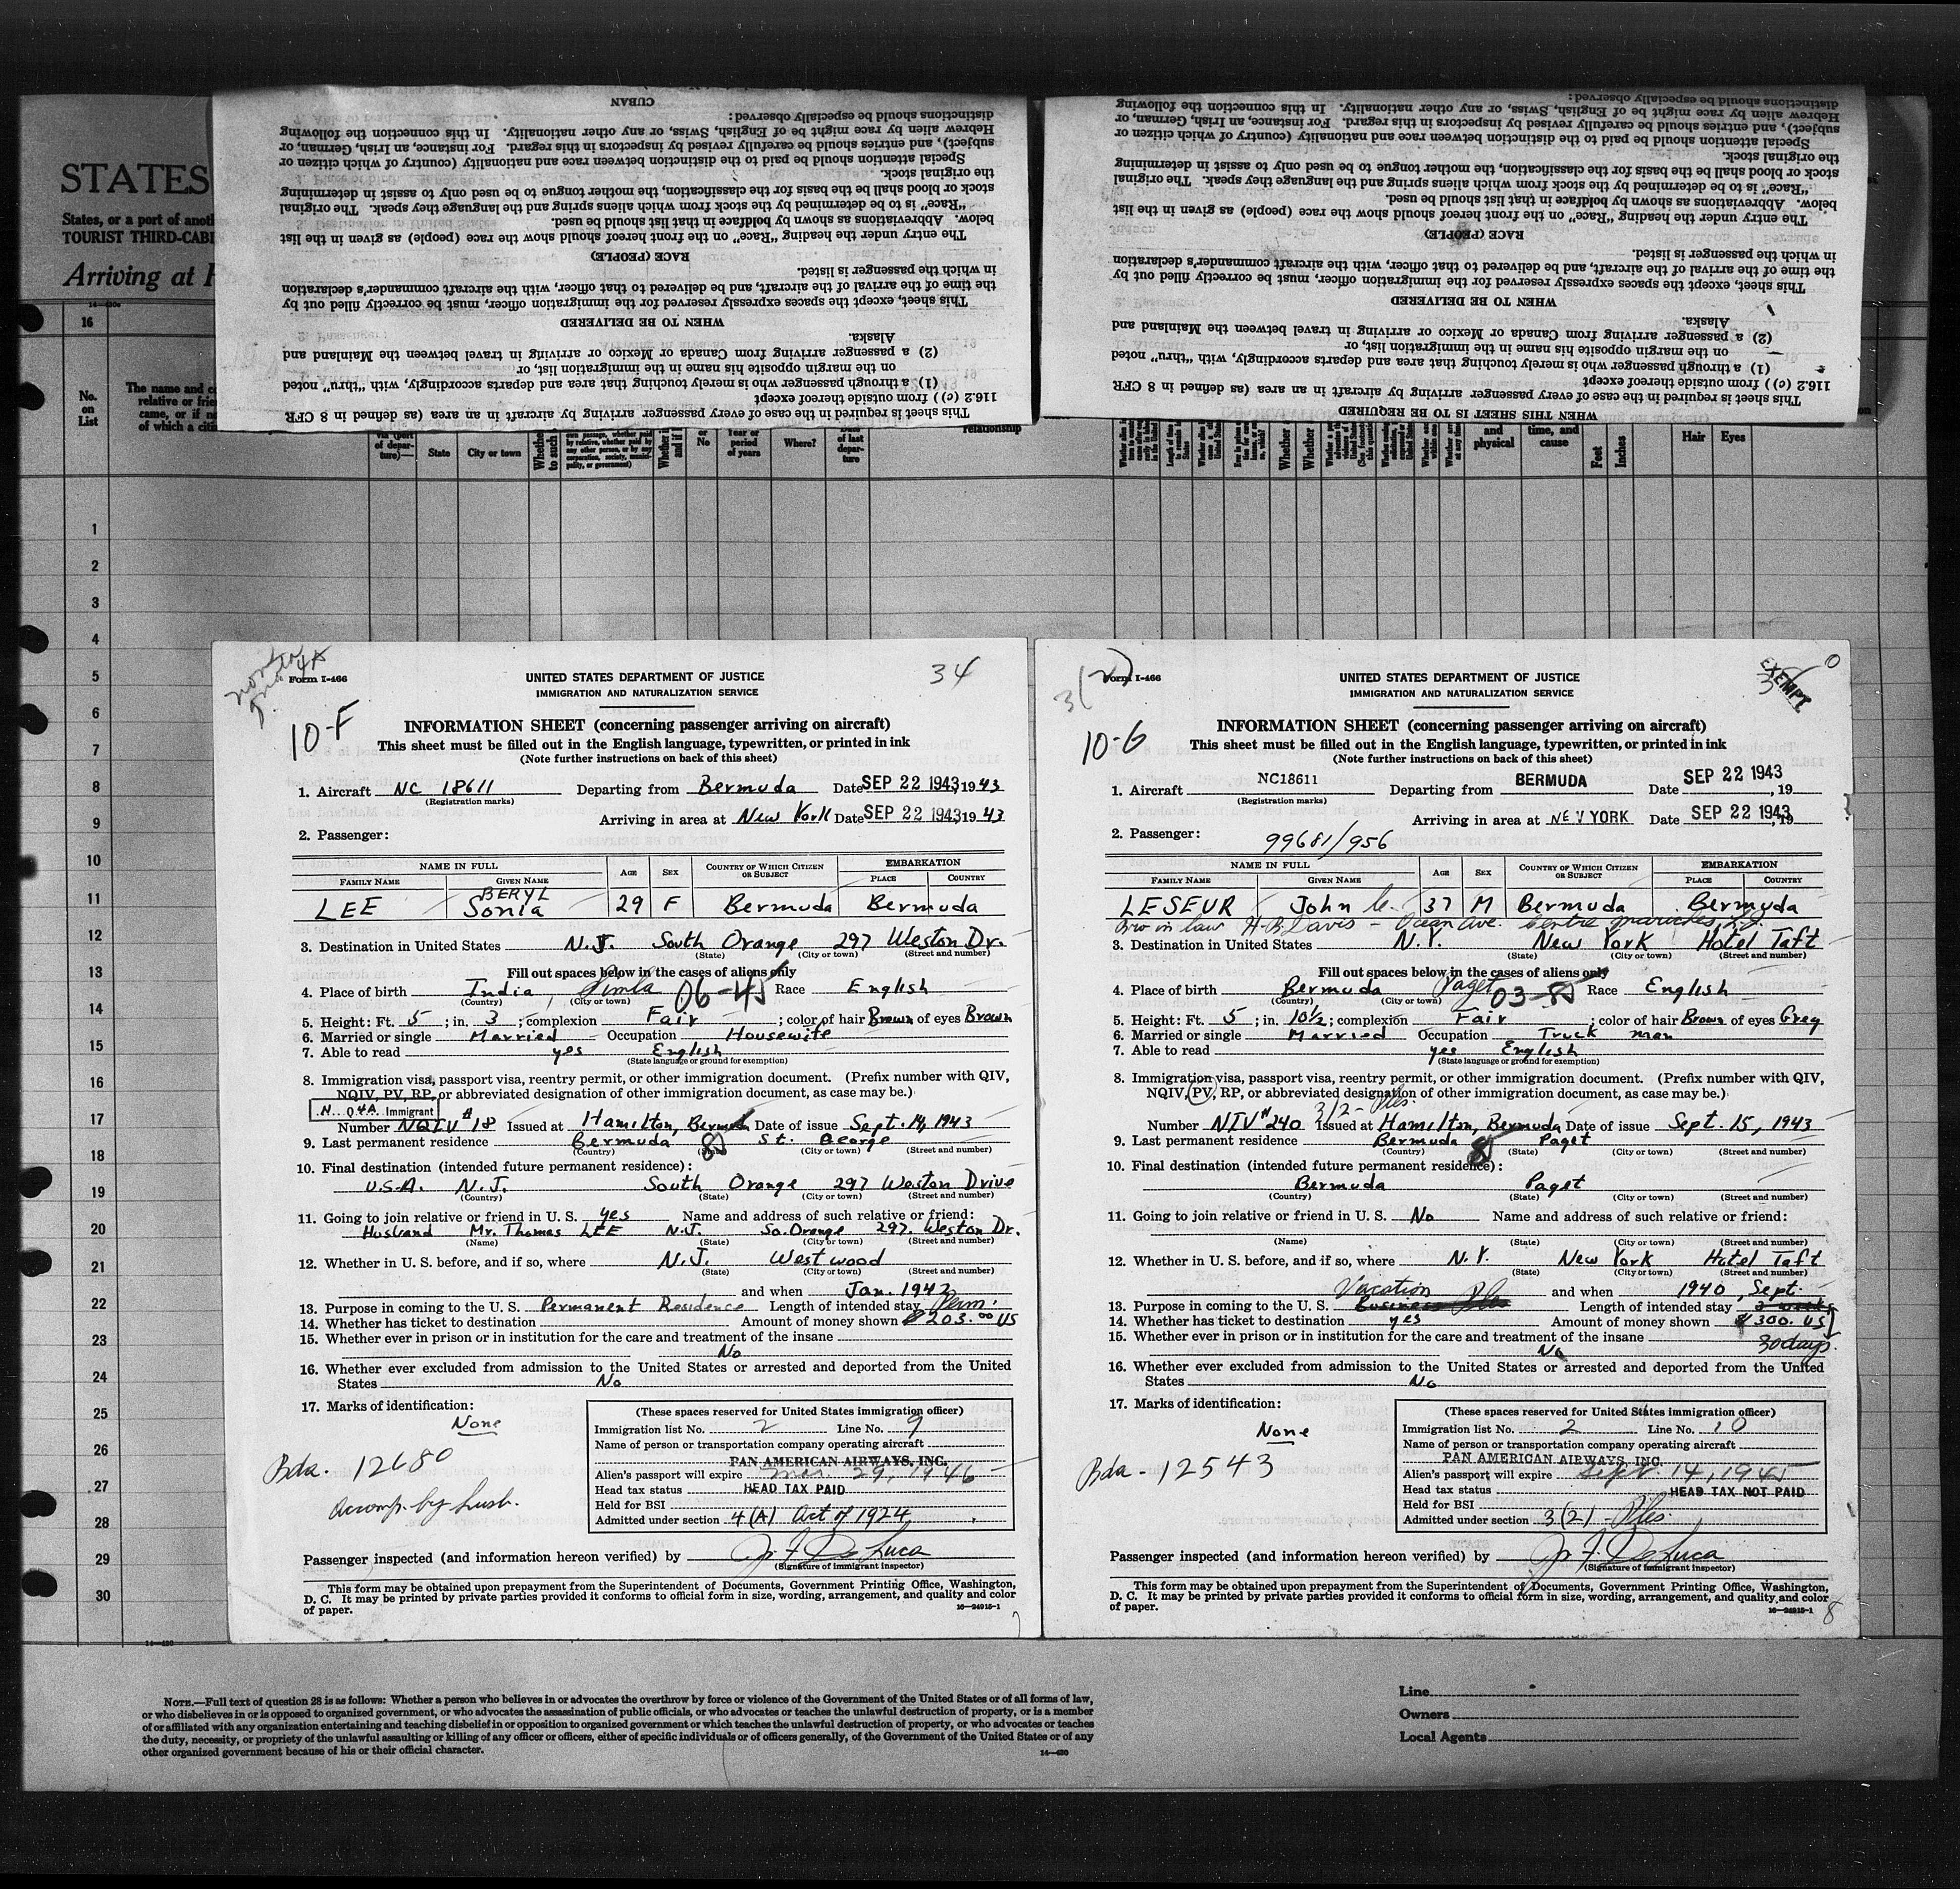 CUBAN
distinctions should be especially observed:
Hebrew alien by race might be of English, Swiss, or any other nationality. In this connection the following
subject), and entries should be carefully revised by inspectors in this regard. For instance, an Irish, German, or
Special attention should be paid to the distinction between race and nationality (country of which citizen or
the original stock.
stock or blood shall be the basis for the classification, the mother tongue to be used only to assist in determining
"Race" is to be determined by the stock from which aliens spring and the language they speak. The original
below. Abbreviations as shown by boldface in that list should be used.
The entry under the heading "Race" on the front hereof should show the race (people) as given in the list
RACE (PEOPLE)
in which the passenger is listed.
the time of the arrival of the aircraft, and be delivered to that officer, with the aircraft commander's declaration
This sheet, except the spaces expressly reserved for the immigration officer, must be correctly filled out by
WHEN TO BE DELIVERED
Alaska.
(2) a passenger arriving from Canada or Mexico or arriving in travel between the Mainland and
on the margin opposite his name in the immigration list, or
(1) a through passenger who is merely touching that area and departs accordingly, with "thru" noted
116.2 (c)) from outside thereof except
This sheet is required in the case of every passenger arriving by aircraft in an area (as defined in 8 CFR
distinctions should be especially observed:
Hebrew alien by race might be of English, Swiss, or any other nationality. In this connection the following
subject), and entries should be carefully revised by inspectors in this regard. For instance, an Irish, German, or
Special attention should be paid to the distinction between race and nationality (country of which citizen or
the original stock.
stock or blood shall be the basis for the classification, the mother tongue to be used only to assist in determining
"Race" is to be determined by the stock from which aliens spring and the language they speak. The original
below. Abbreviations as shown by boldface in that list should be used.
The entry under the heading "Race" on the front hereof should show the race (people) as given in the list
RACE (PEOPLE)
in which the passenger is listed.
the time of the arrival of the aircraft, and be delivered to that officer, with the aircraft commander's declaration
This sheet, except the spaces expressly reserved for the immigration officer, must be correctly filled out by
WHEN TO BE DELIVERED
Alaska.
(2) a passenger arriving from Canada or Mexico or arriving in travel between the Mainland and
on the margin opposite his name in the immigration list, or
(1) a through passenger who is merely touching that area and departs accordingly, with "thru" noted
116.2 (c)) from outside thereof except
This sheet is required in the case of every passenger arriving by aircraft in an area (as defined in 8 CFR
WHEN THIS SHEET IS TO BE REQUIRED
STATES
States, or a port of anoth
TOURIST THIRD-CABI
Arriving at
16
No. on List
The name and co
relative or frie
came, or if no
of which a citi
via (port of departure)—
State
City or town
Whether
to such
or No
Year or period of years
Where?
Date of last departure
relationship
Whether
Whether
and physical
time, and cause
Feet
Inches
Hair
Eyes
1
2
3
4
5
6
7
8
9
10
11
12
13
14
15
16
17
18
19
20
21
22
23
24
25
26
27
28
29
30
4A
Form I-466
34
UNITED STATES DEPARTMENT OF JUSTICE
IMMIGRATION AND NATURALIZATION SERVICE
10-F
INFORMATION SHEET (concerning passenger arriving on aircraft)
This sheet must be filled out in the English language, typewritten, or printed in ink
(Note further instructions on back of this sheet)
1. Aircraft NC 18611 Departing from Bermuda Date SEP 22 1943, 1943
(Registration marks)
Arriving in area at New York Date SEP 22 1943 1943
2. Passenger:
NAME IN FULL AGE SEX COUNTRY OF WHICH CITIZEN OR SUBJECT EMBARKATION
FAMILY NAME GIVEN NAME PLACE COUNTRY
BERYL
LEE Sonia 29 F Bermuda Bermuda
3. Destination in United States N.J. South Orange 297 Weston Dr.
(State) (City or town) (Street and number)
Fill out spaces below in the cases of aliens only
4. Place of birth India, Simla 06-45 Race English
(Country) (City or town)
5. Height: Ft. 5; in. 3; complexion Fair; color of hair Brown of eyes Brown
6. Married or single Married Occupation Housewife
7. Able to read yes English
(State language or ground for exemption)
8. Immigration visa, passport visa, reentry permit, or other immigration document. (Prefix number with QIV,
NQIV, PV, RP, or abbreviated designation of other immigration document, as case may be.)
N. Q 4A Immigrant
Number NQIV #18 Issued at Hamilton, Bermuda Date of issue Sept. 14, 1943
9. Last permanent residence Bermuda 85 St. George
(Country) (State) (City or town) (Street and number)
10. Final destination (intended future permanent residence):
U.S.A. N.J. South Orange 297 Weston Drive
(Country) (State) (City or town) (Street and number)
11. Going to join relative or friend in U. S. yes Name and address of such relative or friend:
Husband Mr. Thomas LEE N.J. So. Orange 297. Weston Dr.
(Name) (State) (City or town) (Street and number)
12. Whether in U. S. before, and if so, where N.J. Westwood
(State) (City or town) (Street and number)
and when Jan. 1942
13. Purpose in coming to the U. S. Permanent Residence Length of intended stay Perm.
14. Whether has ticket to destination Amount of money shown $203.00 US
15. Whether ever in prison or in institution for the care and treatment of the insane
No
16. Whether ever excluded from admission to the United States or arrested and deported from the United
States No
17. Marks of identification:
None
Bda. 12680
Accomp. by husb.
(These spaces reserved for United States immigration officer)
Immigration list No. 2 Line No. 9
Name of person or transportation company operating aircraft
PAN AMERICAN AIRWAYS, INC.
Alien's passport will expire Mar. 29, 1946
Head tax status HEAD TAX PAID
Held for BSI
Admitted under section 4(A) Act of 1924
Passenger inspected (and information hereon verified) by Jr. F. De Luca
(Signature of immigrant inspector)
This form may be obtained upon prepayment from the Superintendent of Documents, Government Printing Office, Washington,
D. C. It may be printed by private parties provided it conforms to official form in size, wording, arrangement, and quality and color
of paper.
16—24915-1
3(2)
Form I-466
EXEMPT
UNITED STATES DEPARTMENT OF JUSTICE
IMMIGRATION AND NATURALIZATION SERVICE
10-G
INFORMATION SHEET (concerning passenger arriving on aircraft)
This sheet must be filled out in the English language, typewritten, or printed in ink
(Note further instructions on back of this sheet)
1. Aircraft NC18611 Departing from BERMUDA Date SEP 22 1943, 19
(Registration marks)
Arriving in area at NEW YORK Date SEP 22 1943, 19
2. Passenger: 99681/956
NAME IN FULL AGE SEX COUNTRY OF WHICH CITIZEN OR SUBJECT EMBARKATION
FAMILY NAME GIVEN NAME PLACE COUNTRY
LESEUR John 37 M Bermuda Bermuda
Bro in law H. B. Davis - Ocean Ave. Centre Moriches, L.I.
3. Destination in United States N.Y. New York Hotel Taft
(State) (City or town) (Street and number)
Fill out spaces below in the cases of aliens only
4. Place of birth Bermuda Paget 03-85 Race English
(Country) (City or town)
5. Height: Ft. 5; in. 10½; complexion Fair; color of hair Brown of eyes Grey
6. Married or single Married Occupation Truck man
7. Able to read yes English
(State language or ground for exemption)
8. Immigration visa, passport visa, reentry permit, or other immigration document. (Prefix number with QIV,
NQIV, PV, RP, or abbreviated designation of other immigration document, as case may be.)
3/2 - Ples.
Number NIV #240 Issued at Hamilton, Bermuda Date of issue Sept. 15, 1943
9. Last permanent residence Bermuda 85 Paget
(Country) (State) (City or town) (Street and number)
10. Final destination (intended future permanent residence):
Bermuda Paget
(Country) (State) (City or town) (Street and number)
11. Going to join relative or friend in U. S. No Name and address of such relative or friend:
(Name) (State) (City or town) (Street and number)
12. Whether in U. S. before, and if so, where N.Y. New York Hotel Taft
(State) (City or town) (Street and number)
Vacation and when 1940, Sept.
13. Purpose in coming to the U. S. Business Ples Length of intended stay 3 weeks
14. Whether has ticket to destination yes Amount of money shown $300. US
15. Whether ever in prison or in institution for the care and treatment of the insane 30 days.
No
16. Whether ever excluded from admission to the United States or arrested and deported from the United
States No
17. Marks of identification:
None
Bda - 12543
(These spaces reserved for United States immigration officer)
Immigration list No. 2 Line No. 10
Name of person or transportation company operating aircraft
PAN AMERICAN AIRWAYS, INC.
Alien's passport will expire Sept. 14, 1945
Head tax status HEAD TAX NOT PAID
Held for BSI
Admitted under section 3(2) - Ples.
Passenger inspected (and information hereon verified) by Jr. F. De Luca
(Signature of immigrant inspector)
This form may be obtained upon prepayment from the Superintendent of Documents, Government Printing Office, Washington,
D. C. It may be printed by private parties provided it conforms to official form in size, wording, arrangement, and quality and color
of paper.
16—24915-1
8
NOTE.—Full text of question 28 is as follows: Whether a person who believes in or advocates the overthrow by force or violence of the Government of the United States or of all forms of law,
or who disbelieves in or is opposed to organized government, or who advocates the assassination of public officials, or who advocates or teaches the unlawful destruction of property, or is a member
of or affiliated with any organization entertaining and teaching disbelief in or opposition to organized government or which teaches the unlawful destruction of property, or who advocates or teaches
the duty, necessity, or propriety of the unlawful assaulting or killing of any officer or officers, either of specific individuals or of officers generally, of the Government of the United States or of any
other organized government because of his or their official character.
14—430
Line
Owners
Local Agents